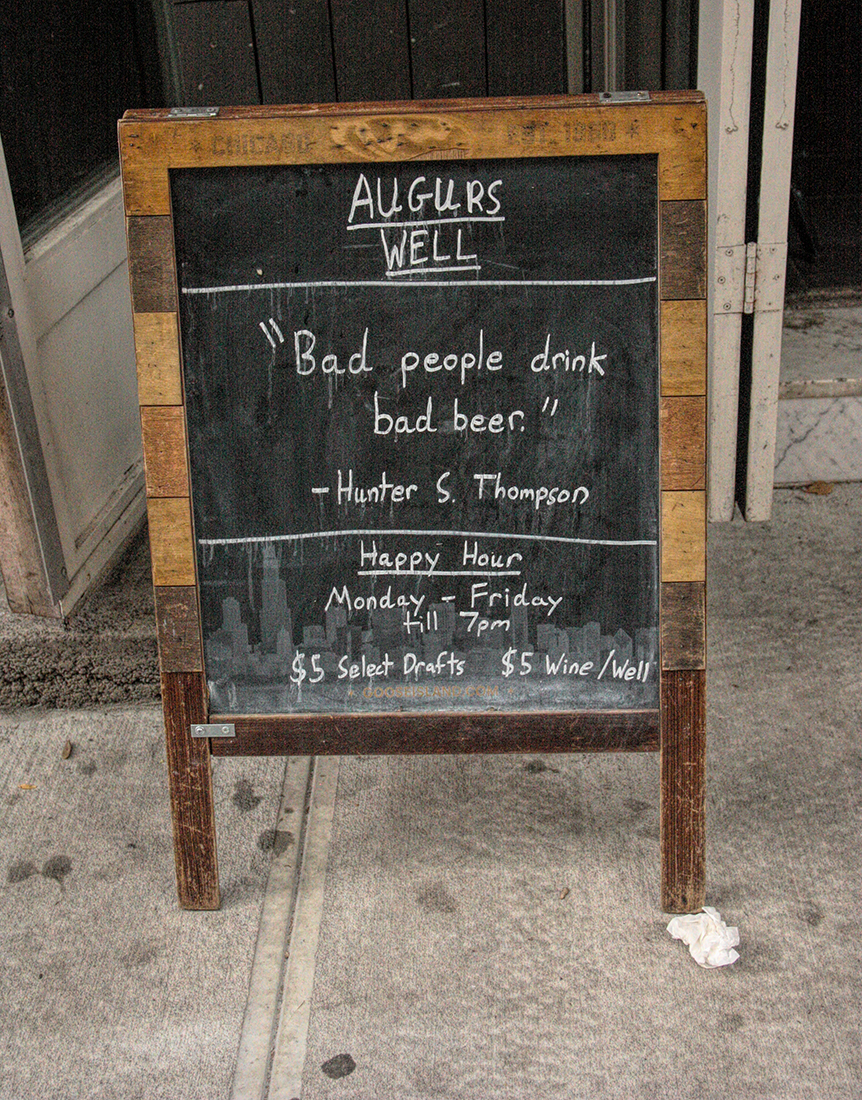 CHICAGO
AUGURS
WELL
"Bad people drink
bad beer."
-Hunter S. Thompson
Happy Hour
Monday - Friday
till 7pm
$5 Select Drafts $5 Wine/Well